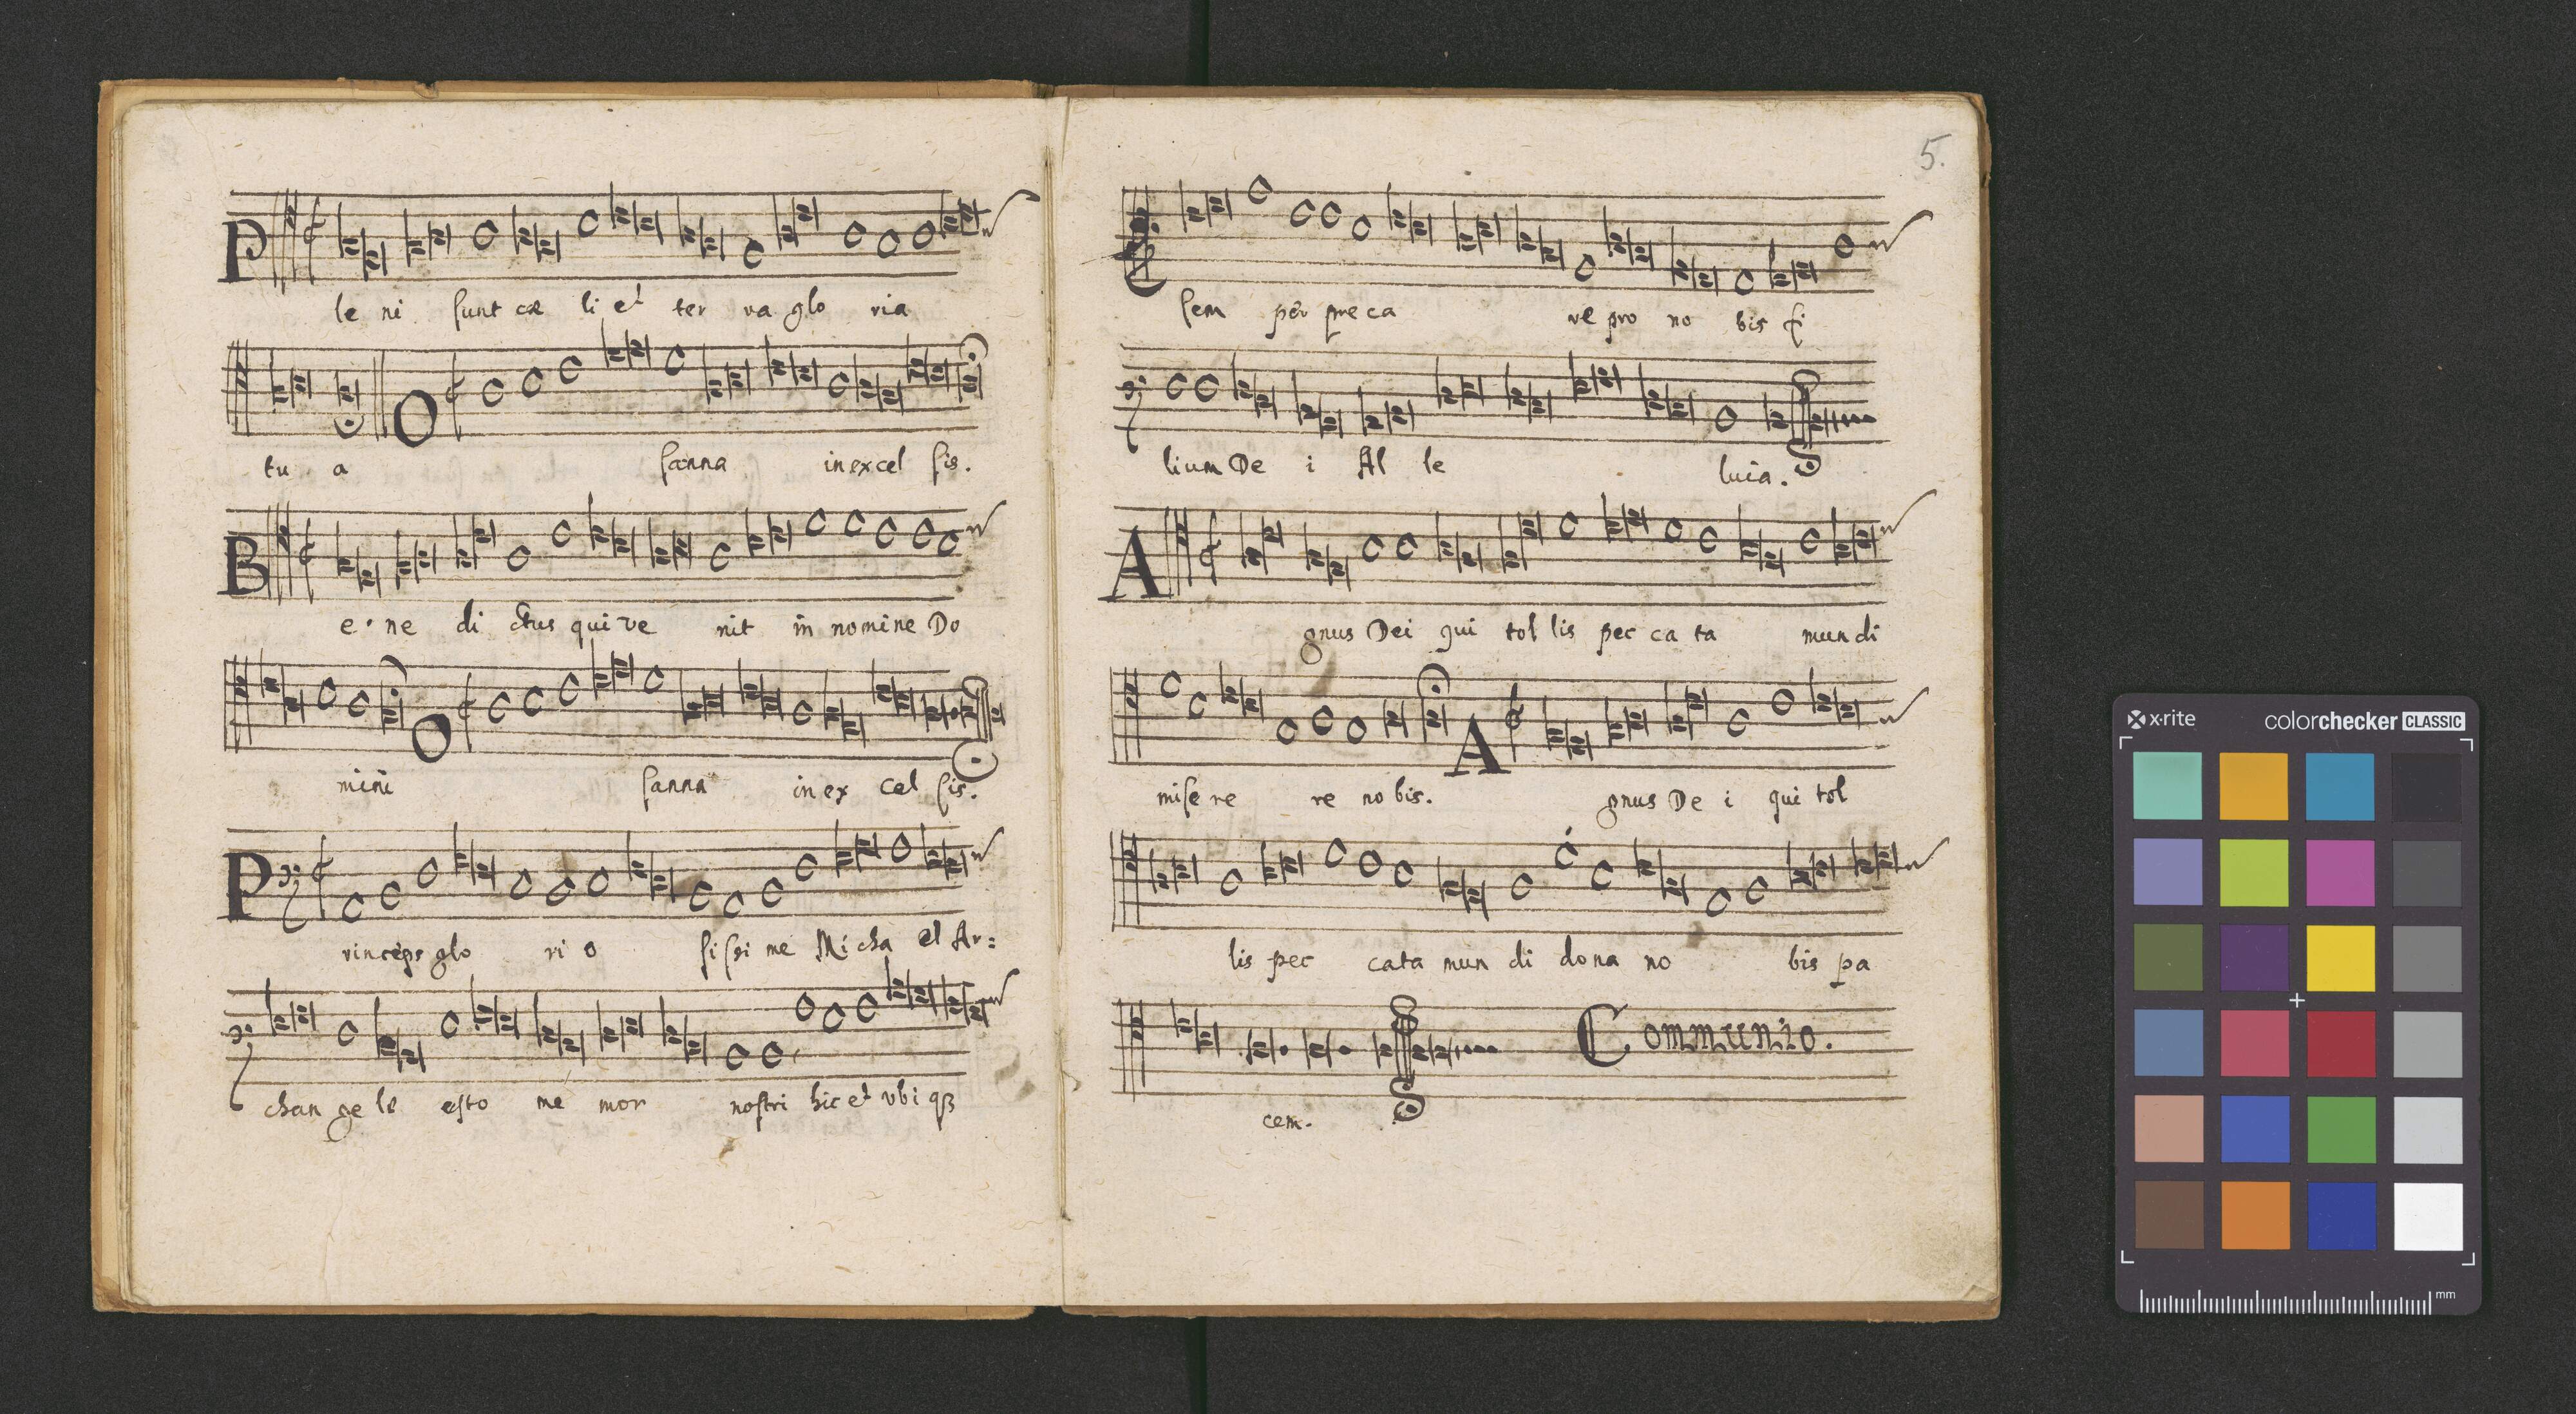 P le ni sunt cæ li et ter ra glo ria
tu a O sanna in excel sis.
B e ne di ctus qui ve nit in nomine Do
mini O sanna in ex cel sis.
P rinceps glo ri o sissi me Micha el Ar=
chan ge le esto me mor nostri hic et vbi qꝫ
5.
sem per preca re pro no bis fi
lium De i Al le luia.
A gnus Dei qui tol lis pec ca ta mundi
mise re re nobis. A gnus De i qui tol
lis pec cata mun di dona no bis pa
cem. Communio.
x-rite colorchecker CLASSIC
mm